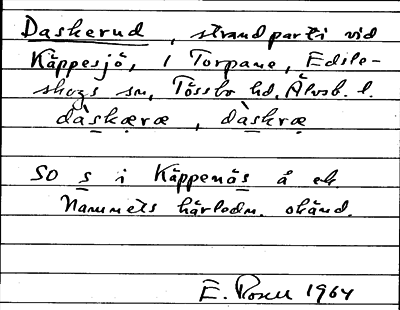 Daskerud, strandparti vid
Käppesjö, i Torpane, Edsle-
skogs sn, Tössbo hd, Älvsb. l.
dàskæræ, dàskræ
SO s i Käppenäs å ek.
Namnets härledn. okänd.
E. Rosell 1964